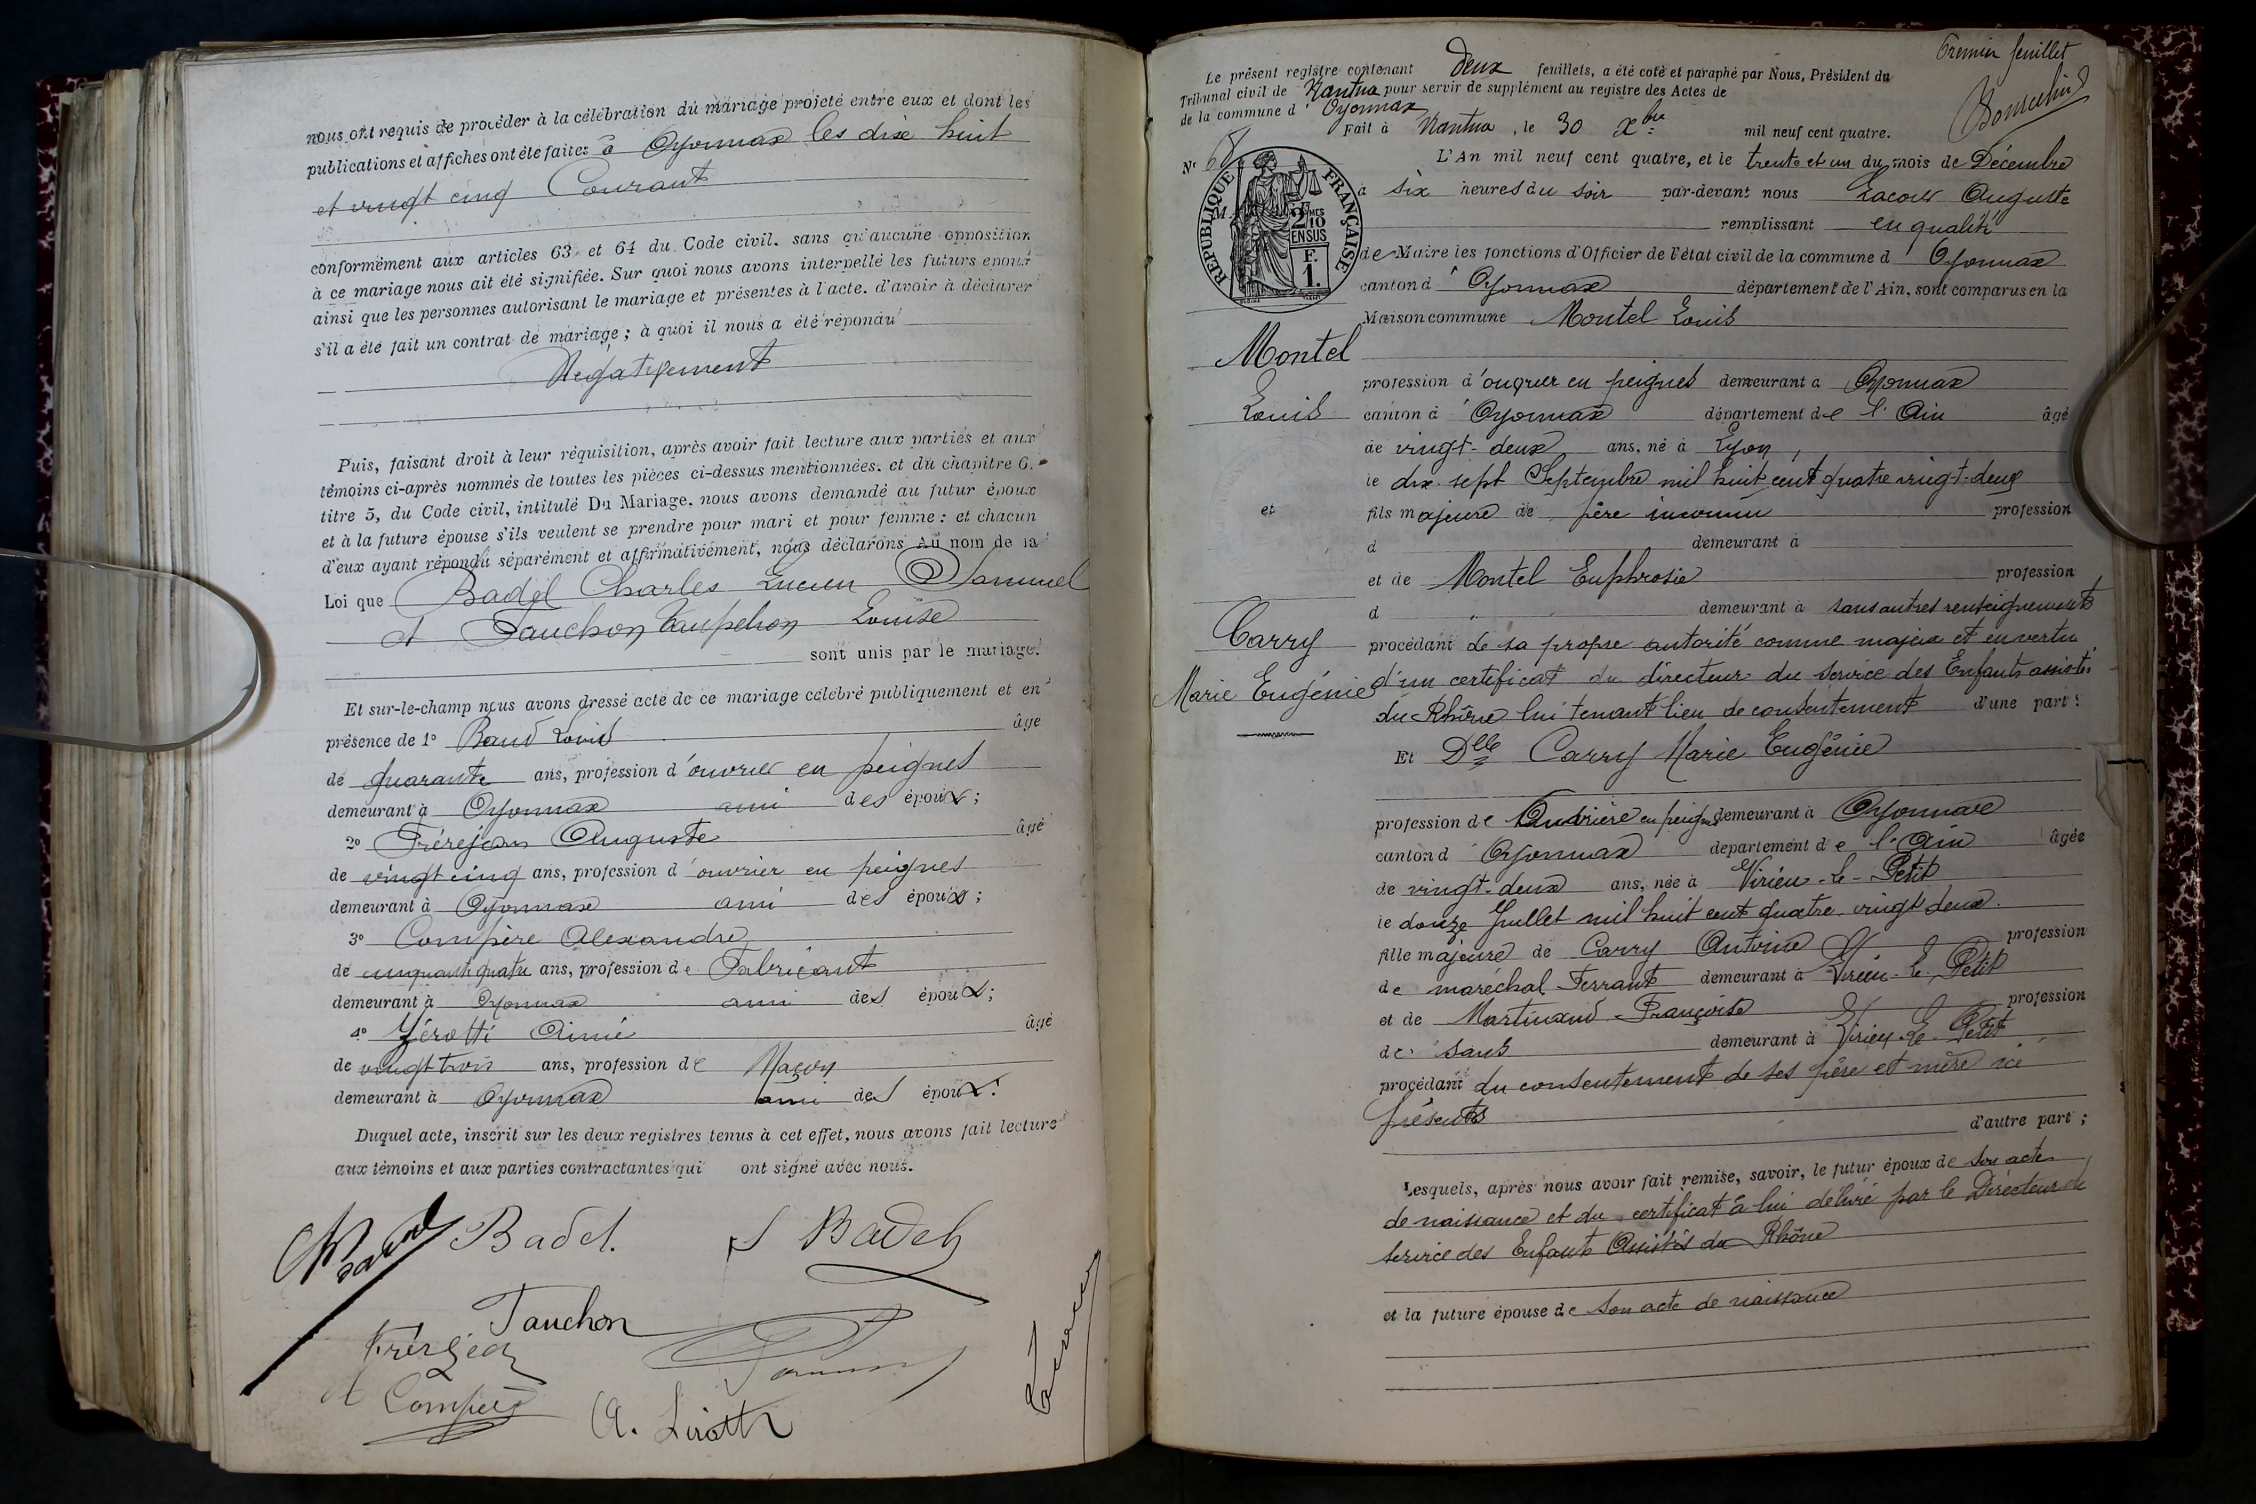 nous ont requis de procéder à la célébration du mariage projeté entre eux et dont les
publications et affiches ont été faites à Oyonnax les dix huit
et vingt cinq Courant
conformément aux articles 63 et 64 du Code civil, sans qu'aucune opposition
à ce mariage nous ait été signifiée. Sur quoi nous avons interpellé les futurs époux
ainsi que les personnes autorisant le mariage et présentes à l'acte, d'avoir à déclarer
s'il a été fait un contrat de mariage ; à quoi il nous a été répondu
Négativement
Puis, faisant droit à leur réquisition, après avoir fait lecture aux parties et aux
témoins ci-après nommés de toutes les pièces ci-dessus mentionnées, et du chapitre 6,
titre 5, du Code civil, intitulé Du Mariage, nous avons demandé au futur époux
et à la future épouse s'ils veulent se prendre pour mari et pour femme : et chacun
d'eux ayant répondu séparément et affirmativement, nous déclarons Au nom de la
Loi que Badel Charles Lucien Samuel
et Tauchon Louise
sont unis par le mariage.
Et sur-le-champ nous avons dressé acte de ce mariage célébré publiquement et en
présence de 1° Baud Louis âgé
de quarante ans, profession d'ouvrier en peignes
demeurant à Oyonnax ami des époux ;
2° Frérejean Auguste âgé
de vingt cinq ans, profession d'ouvrier en peignes
demeurant à Oyonnax ami des époux ;
3° Compère Alexandre
de cinquante quatre ans, profession de Fabricant
demeurant à Oyonnax ami des époux ;
4° Aimé âgé
de vingt trois ans, profession de Maçon
demeurant à Oyonnax ami des époux.
Duquel acte, inscrit sur les deux registres tenus à cet effet, nous avons fait lecture
aux témoins et aux parties contractantes qui ont signé avec nous.
Baud Badel. Badel
Tauchon
Frérejean
A Compère
Premier feuillet
Le présent registre contenant Deux feuillets, a été coté et paraphé par Nous, Président du
Tribunal civil de Nantua pour servir de supplément au registre des Actes de
de la commune d'Oyonnax
Fait à Nantua, le 30 Xbre mil neuf cent quatre.
N° 68
RÉPUBLIQUE FRANÇAISE
2 10MES
EN SUS
F.
1.
L'An mil neuf cent quatre, et le trente et un du mois de Décembre
à six heures du soir par-devant nous Lacour Auguste
remplissant en qualité
de Maire les fonctions d'Officier de l'état civil de la commune d'Oyonnax
canton d'Oyonnax département de l'Ain, sont comparus en la
Maison commune Montel Louis
Montel
Louis
et
Carry
Marie Eugénie
profession d'ouvrier en peignes demeurant à Oyonnax
canton d'Oyonnax département de l'Ain âgé
de vingt-deux ans, né à Lyon,
le dix-sept Septembre mil huit cent quatre vingt-deux
fils majeure de père inconnu profession
d demeurant à
et de Montel Euphrosie profession
d " demeurant à sans autres renseignements
procédant de sa propre autorité comme majeur et en vertu
d'un certificat du directeur du service des Enfants assistés
du Rhône lui tenant lieu de consentement d'une part ;
Et Dlle Carry Marie Eugénie
profession de Ouvrière en peignes demeurant à Oyonnax
canton d'Oyonnax département de l'Ain âgée
de vingt-deux ans, née à Virieu-le-Petit
le douze Juillet mil huit cent quatre-vingt deux.
fille majeure de Carry Antoine profession
de maréchal-Ferrant demeurant à Virieu-le-Petit
et de Martinand Françoise profession
de sans demeurant à Virieu-le-Petit
procédant du consentement de ses père et mère ici
présents
d'autre part ;
Lesquels, après nous avoir fait remise, savoir, le futur époux de son acte
de naissance et du certificat à lui délivré par le Directeur du
service des Enfants Assistés du Rhône
et la future épouse de son acte de naissance